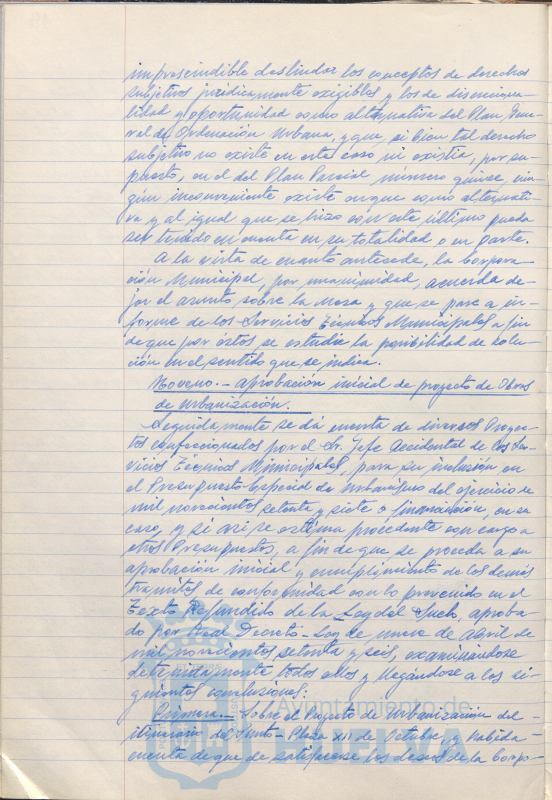 imprescindible deslindar los conceptos de derechos
subjetivos jurídicamente exigibles y los de discreciona-
lidad y oportunidad como alternativa del Plan Gene-
ral de Ordenación Urbana, y que, si bien tal derecho
subjetivo no existe en este caso ni existía, por su-
puesto, en el del Plan Parcial número quince, nin-
gún inconveniente existe en que como alternati-
va y al igual que se hizo con este último pueda
ser tenido en cuenta en su totalidad o en parte.
A la vista de cuanto antecede, la Corpora-
ción Municipal, por unanimidad, acuerda de-
jar el asunto sobre la Mesa y que se pase a in-
forme de los Servicios Técnicos Municipales a fin
de que por éstos se estudie la posibilidad de solu-
ción en el sentido que se indica.
Noveno.- Aprobación inicial de proyecto de Obras
de Urbanización.
Seguidamente se dá cuenta de diversos Proyec-
tos confeccionados por el Sr. Jefe Accidental de los Ser-
vicios Técnicos Municipales, para su inclusión en
el Presupuesto Especial de Urbanismo del ejercicio de
mil novecientos setenta y siete o financiación, en su
caso, y si así se estima procedente con cargo a
otros Presupuestos, a fin de que se proceda a su
aprobación inicial y cumplimiento de los demás
trámites de conformidad con lo prevenido en el
Texto Refundido de la Ley del Suelo, aproba-
do por Real Decreto-Ley de nueve de Abril de
mil novecientos setenta y seis, examinándose
detenidamente todos ellos y llegándose a las si-
guientes conclusiones:
Primera.- Sobre el Proyecto de Urbanización del
itinerario del Punto - Plaza XII de Octubre, y habida
cuenta de que de satisfacerse los deseos de la Corpo-
Ayuntamiento de
HUELVA